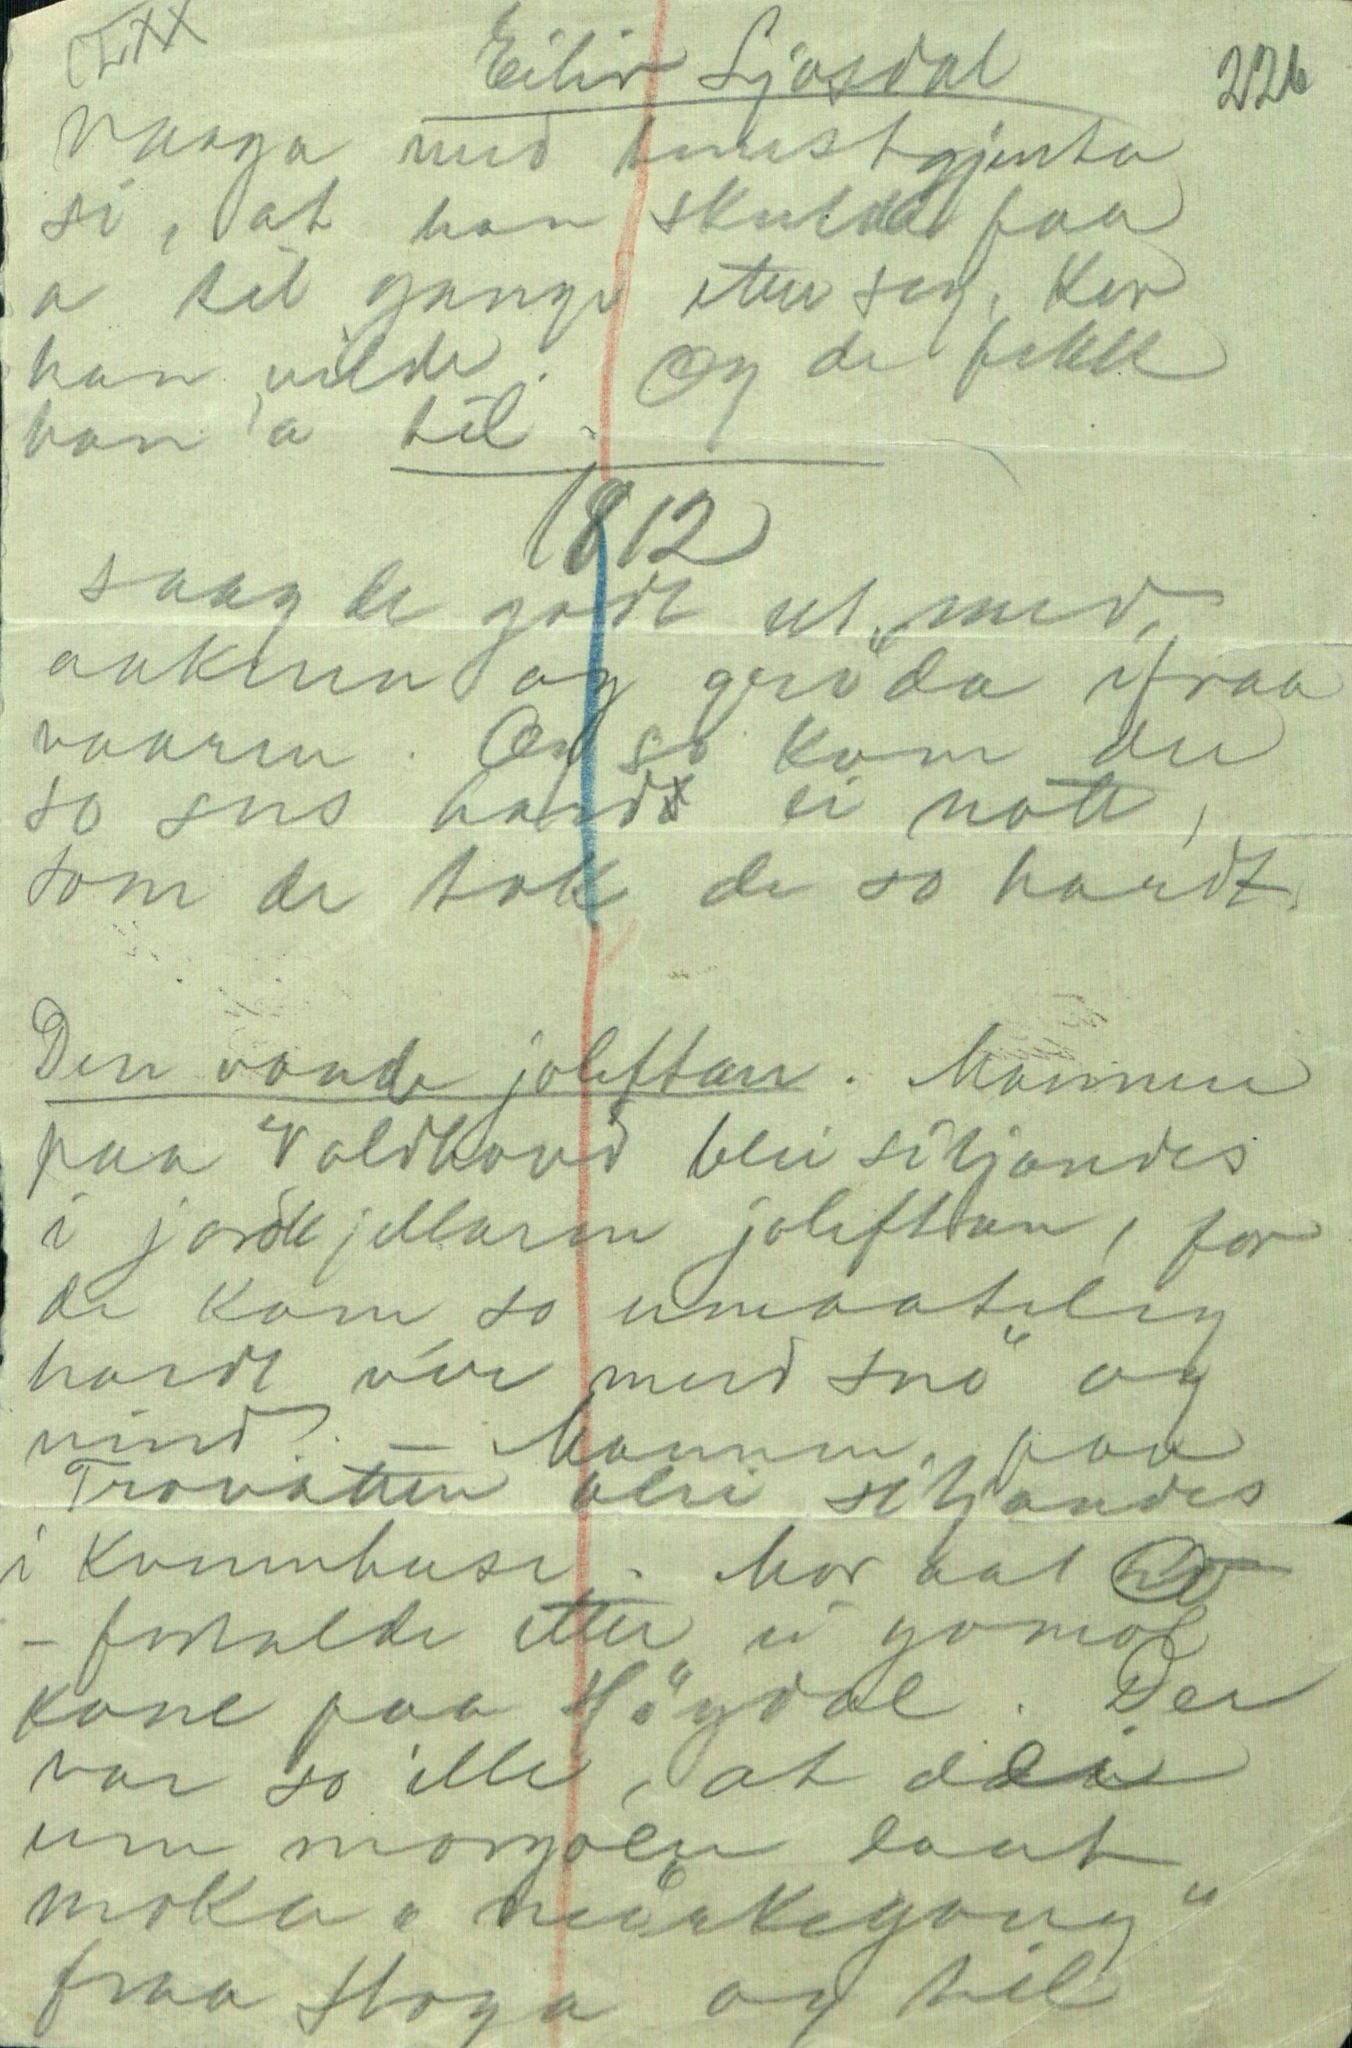 Eiliv Ljosdal
226
Vaaga med tenestgjenta
si, at han skulde faa
a til gange etter seg, kor
han vilde. Og de fekk
han a til.
1812
saag de godt ut med
aakeren og gröda ifraa
vaaren. Og so kom der
so sns hard ei nott,
som de tok de so hardt.
Den vonde joleftan. Mannen
paa Voldkovd blei sitjandes
i jordkjellaren joleftan, for
de kom so umaateleg
hardt vér med snö og
vind. - Mannen paa
Trovatten blei sitjandes
i Kvennhuse. Mor aat
- fortalde etter ei gomol
kone paa Högdal. Der
var so ille, at dei
um morgoen laut
moka
fraa Stoga og til